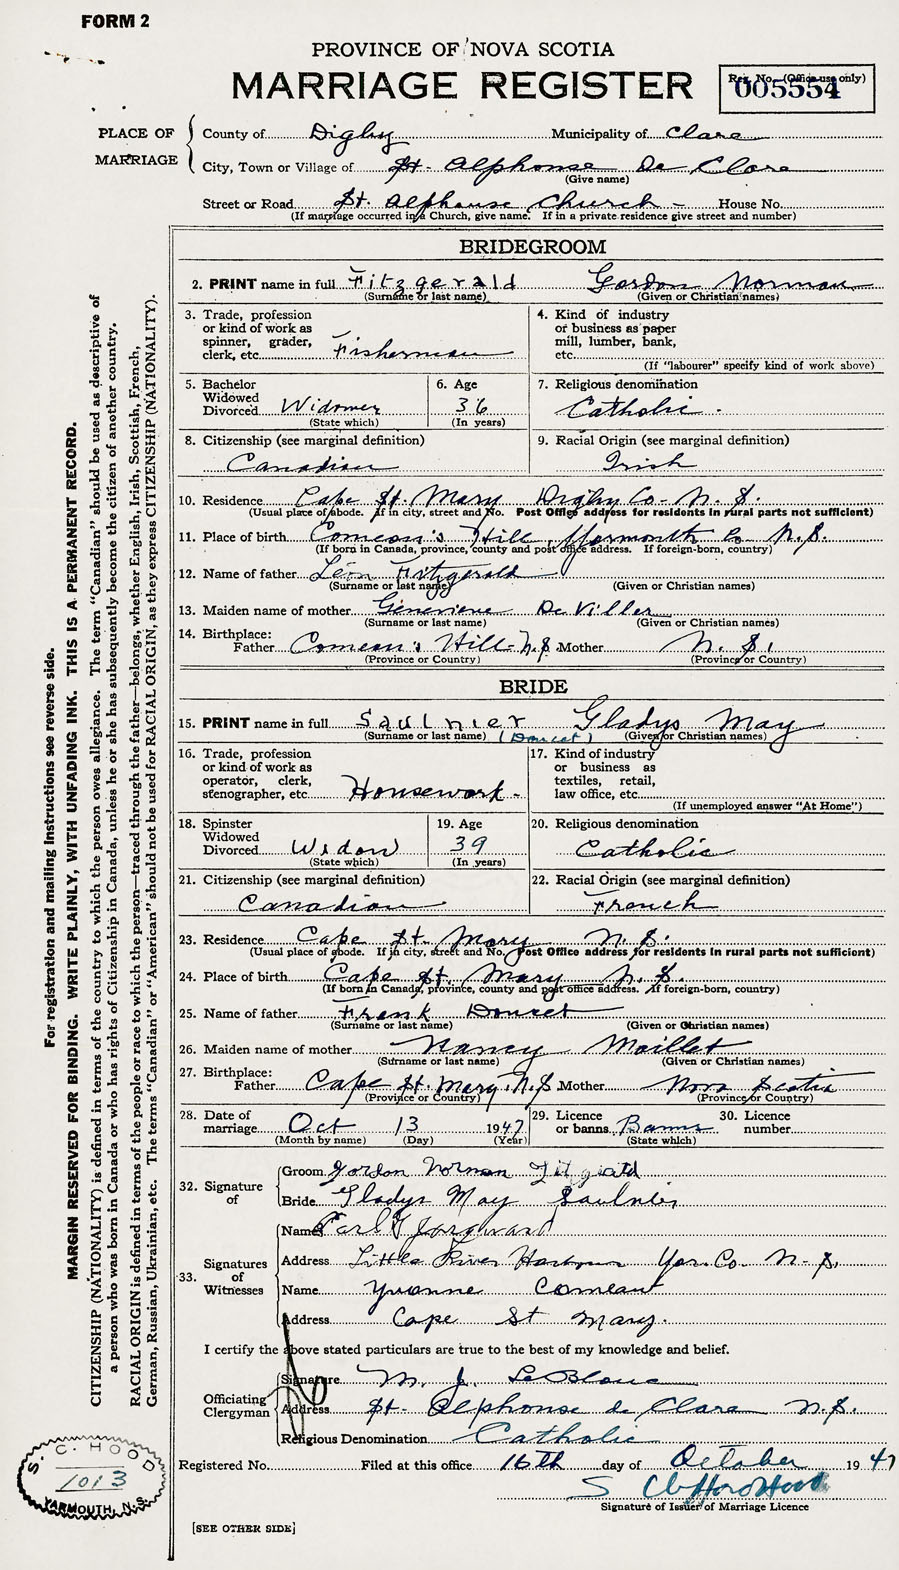 FORM 2
PROVINCE OF NOVA SCOTIA
MARRIAGE REGISTER
Reg. No. (Office use only)
005554
PLACE OF MARRIAGE
County of Digby Municipality of Clare
City, Town or Village of St. Alphonse De Clare
(Give name)
Street or Road St. Alphonse Church - House No.
(If marriage occurred in a Church, give name. If in a private residence give street and number)
BRIDEGROOM
2. PRINT name in full Fitzgerald Gordon Norman
(Surname or last name) (Given or Christian names)
3. Trade, profession
or kind of work as
spinner, grader,
clerk, etc. Fisherman
4. Kind of industry
or business as paper
mill, lumber, bank,
etc.
(If "labourer" specify kind of work above)
5. Bachelor
Widowed
Divorced Widower
(State which)
6. Age
36
(In years)
7. Religious denomination
Catholic .
8. Citizenship (see marginal definition)
Canadian
9. Racial Origin (see marginal definition)
Irish
10. Residence Cape St. Mary Digby Co- N. S.
(Usual place of abode. If in city, street and No. Post Office address for residents in rural parts not sufficient)
11. Place of birth Comeau's Hill, Yarmouth Co N. S.
(If born in Canada, province, county and post office address. If foreign-born, country)
12. Name of father Léon Fitzgerald
(Surname or last name) (Given or Christian names)
13. Maiden name of mother Genevieve De Viller
(Surname or last name) (Given or Christian names)
14. Birthplace:
Father Comeau's Hill- N.S. Mother N. S.
(Province or Country) (Province or Country)
BRIDE
15. PRINT name in full Saulnier Gladys May
(Surname or last name) (Doucet) (Given or Christian names)
16. Trade, profession
or kind of work as
operator, clerk,
stenographer, etc. Housework -
17. Kind of industry
or business as
textiles, retail,
law office, etc.
(If unemployed answer "At Home")
18. Spinster
Widowed
Divorced Widow
(State which)
19. Age
39
(In years)
20. Religious denomination
Catholic
21. Citizenship (see marginal definition)
Canadian
22. Racial Origin (see marginal definition)
French
23. Residence Cape St. Mary N. S.
(Usual place of abode. If in city, street and No. Post Office address for residents in rural parts not sufficient)
24. Place of birth Cape St. Mary N. S.
(If born in Canada, province, county and post office address. If foreign-born, country)
25. Name of father Frank Doucet
(Surname or last name) (Given or Christian names)
26. Maiden name of mother Nancy Maillet
(Surname or last name) (Given or Christian names)
27. Birthplace:
Father Cape St. Mary N. S Mother Nova Scotia
(Province or Country) (Province or Country)
28. Date of
marriage Oct 13 1947
(Month by name) (Day) (Year)
29. Licence
or banns Banns
(State which)
30. Licence
number
32. Signature
of
Groom Gordon Norman Fitzgerald
Bride Gladys May Saulnier
33. Signatures
of
Witnesses
Name Carl
Address Little River Harbour Yar. Co. N. S.
Name Yvonne Comeau
Address Cape St Mary.
I certify the above stated particulars are true to the best of my knowledge and belief.
Officiating
Clergyman
Signature M. J. LeBlanc
Address St- Alphonse de Clare N. S.
Religious Denomination Catholic
Registered No. Filed at this office 16th day of October 1947
S Clifford Hood
Signature of Issuer of Marriage Licence
[SEE OTHER SIDE]
For registration and mailing instructions see reverse side.
MARGIN RESERVED FOR BINDING. WRITE PLAINLY, WITH UNFADING INK. THIS IS A PERMANENT RECORD.
CITIZENSHIP (NATIONALITY) is defined in terms of the country to which the person owes allegiance. The term "Canadian" should be used as descriptive of
a person who was born in Canada or who has rights of Citizenship in Canada, unless he or she has subsequently become the citizen of another country.
RACIAL ORIGIN is defined in terms of the people or race to which the person—traced through the father—belongs, whether English, Irish, Scottish, French,
German, Russian, Ukrainian, etc. The terms "Canadian" or "American" should not be used for RACIAL ORIGIN, as they express CITIZENSHIP (NATIONALITY).
S. C. HOOD
1013
YARMOUTH, N. S.